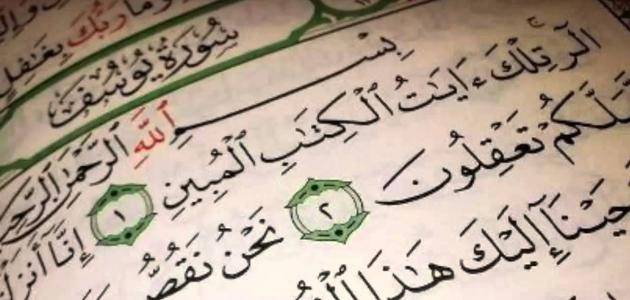 وَمَا رَبُّكَ بِغَٰفِلٍ
سُورَةُ يُوسُفَ
بِسْمِ ٱللَّهِ ٱلرَّحْمَٰنِ ٱلرَّحِيمِ
الٓر تِلْكَ ءَايَٰتُ ٱلْكِتَٰبِ ٱلْمُبِينِ ١ إِنَّآ أَنزَلْ
لَّكُمْ تَعْقِلُونَ ٢ نَحْنُ نَقُصُّ
حَيْنَآ إِلَيْكَ هَٰذَا